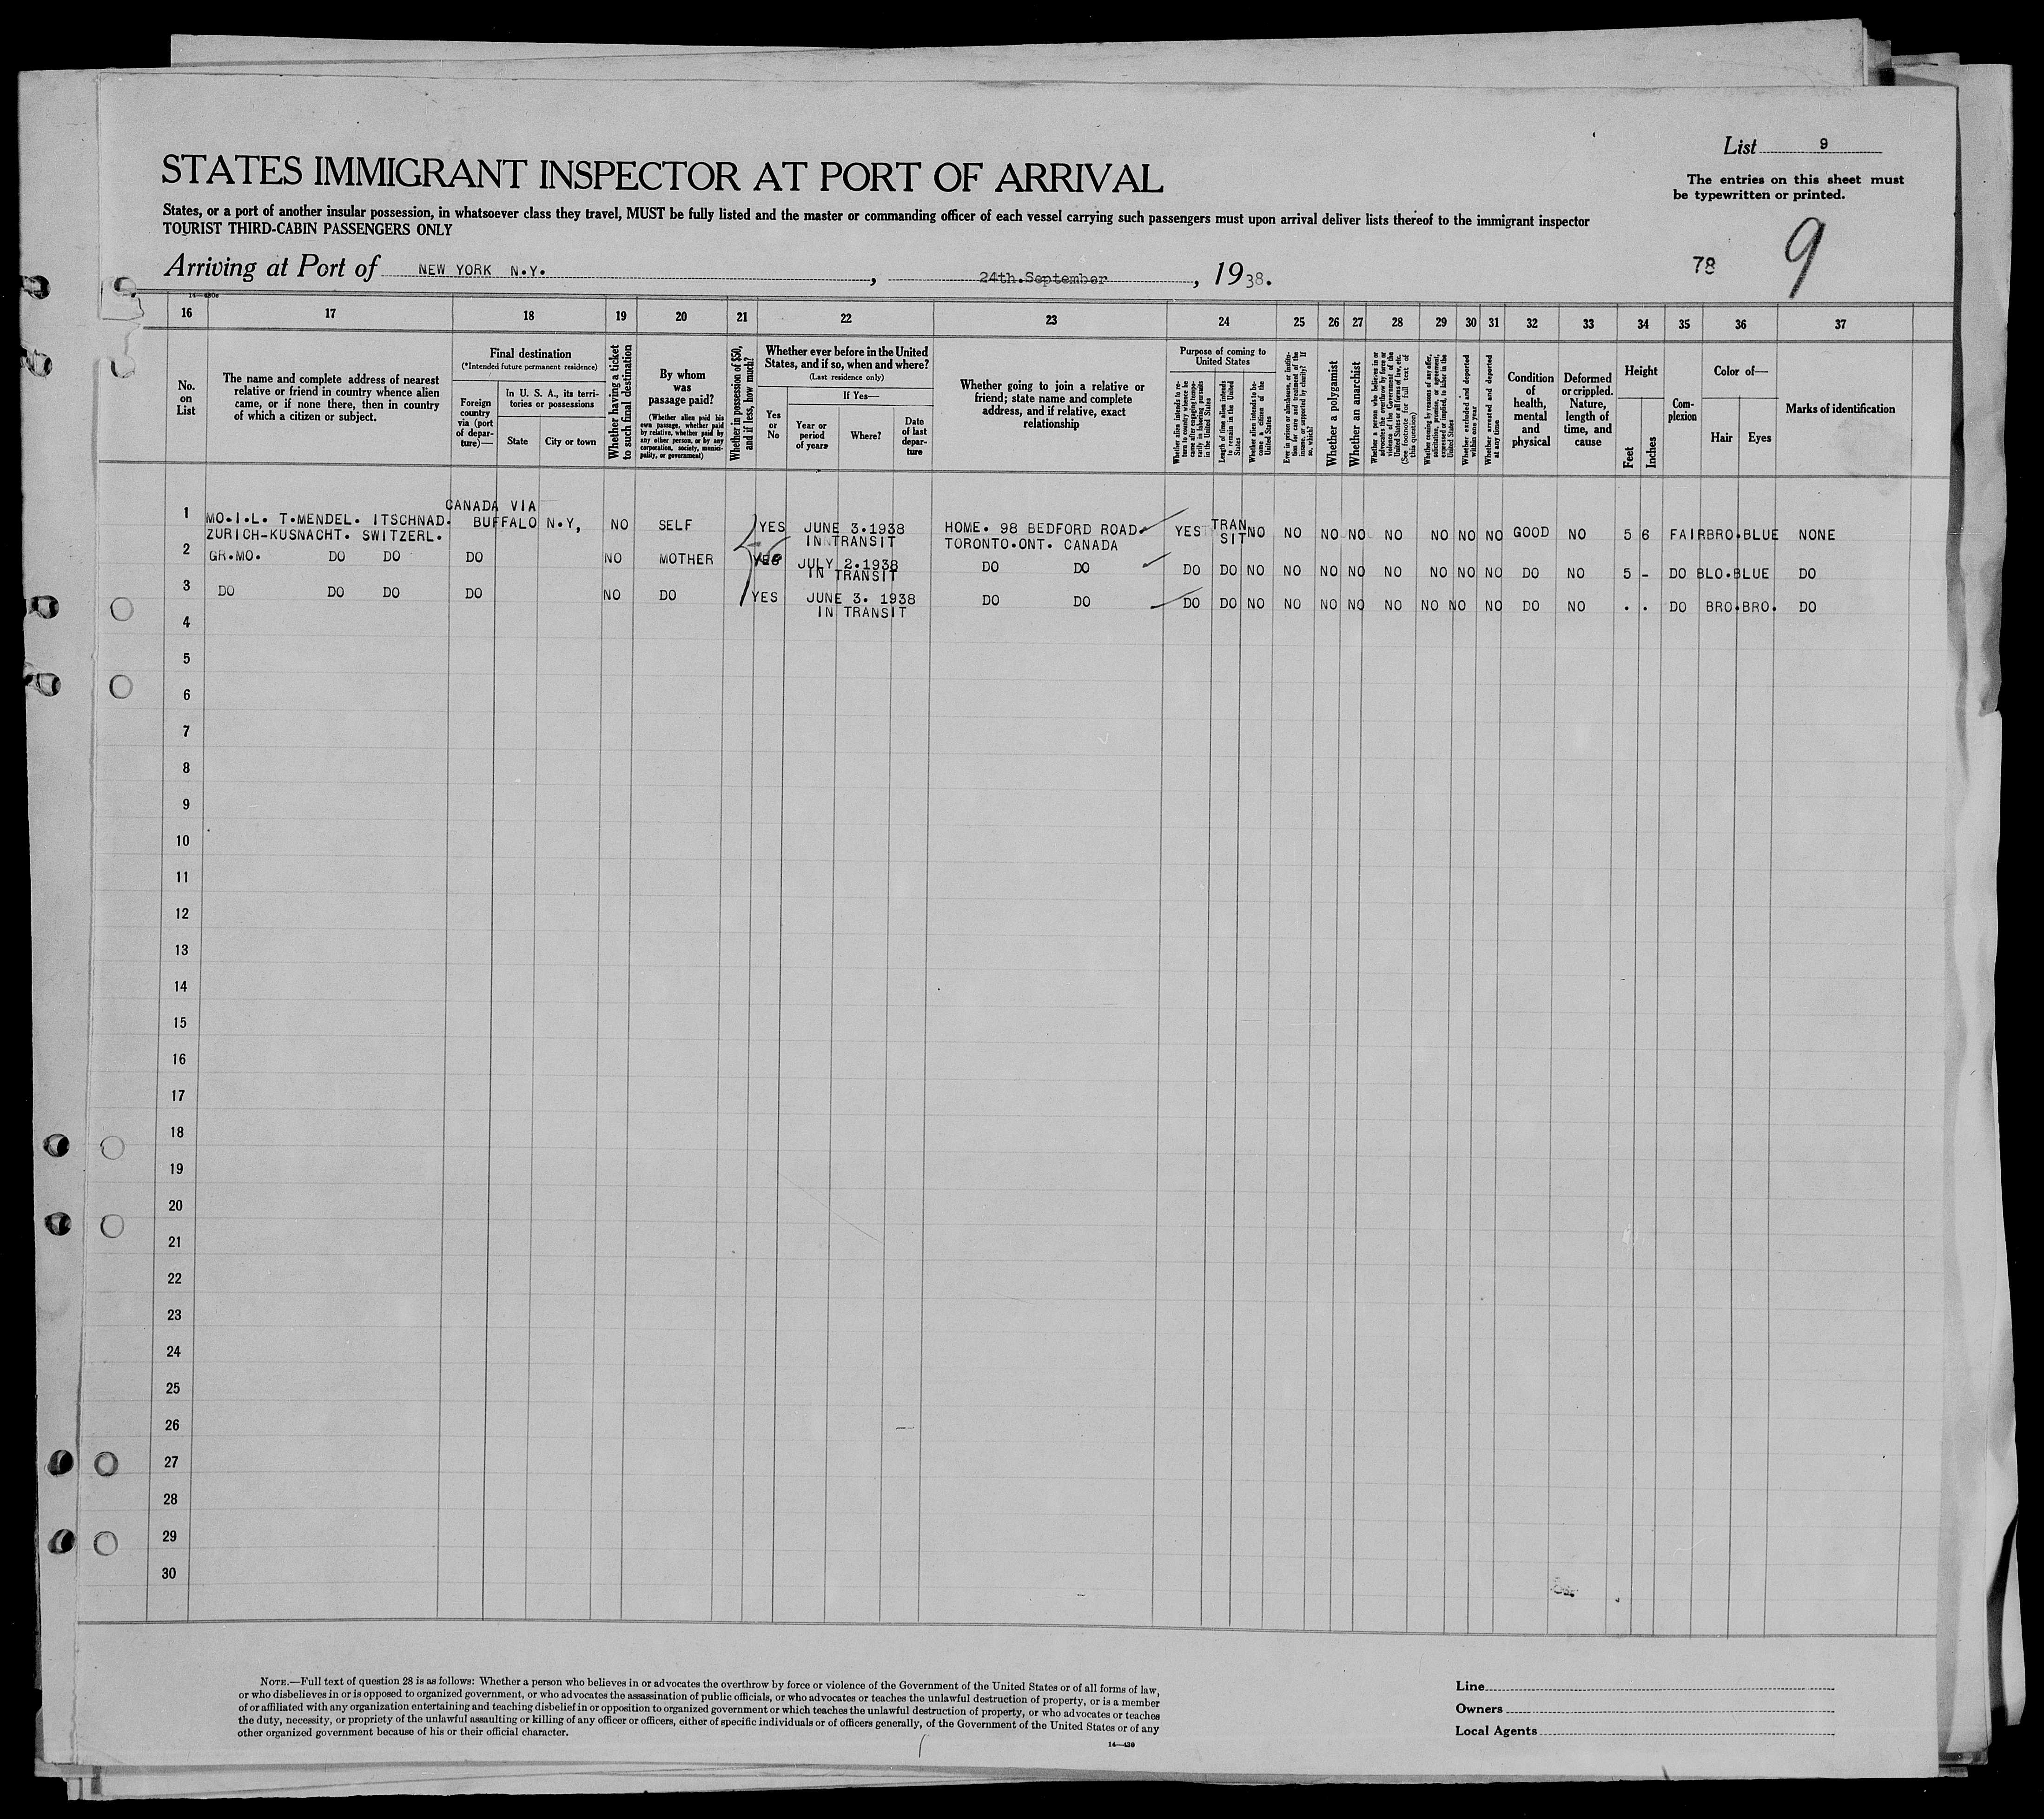 List 9
The entries on this sheet must
be typewritten or printed.
STATES IMMIGRANT INSPECTOR AT PORT OF ARRIVAL
States, or a port of another insular possession, in whatsoever class they travel, MUST be fully listed and the master or commanding officer of each vessel carrying such passengers must upon arrival deliver lists thereof to the immigrant inspector
TOURIST THIRD-CABIN PASSENGERS ONLY
Arriving at Port of NEW YORK N.Y. , 24th.September , 1938.
78 9
14—430c
16 17 18 19 20 21 22 23 24 25 26 27 28 29 30 31 32 33 34 35 36 37
No. on List
The name and complete address of nearest relative or friend in country whence alien came, or if none there, then in country of which a citizen or subject.
Final destination
(*Intended future permanent residence)
Foreign country via (port of departure)—
In U. S. A., its territories or possessions
State
City or town
Whether having a ticket to such final destination
By whom was passage paid?
(Whether alien paid his own passage, whether paid by relative, whether paid by any other person, or by any corporation, society, municipality, or government)
Whether in possession of $50, and if less, how much?
Whether ever before in the United States, and if so, when and where?
(Last residence only)
Yes or No
If Yes—
Year or period of years
Where?
Date of last departure
Whether going to join a relative or friend; state name and complete address, and if relative, exact relationship
Purpose of coming to United States
Whether alien intends to return to country whence he came after engaging temporarily in laboring pursuits in the United States
Length of time alien intends to remain in the United States
Whether alien intends to become a citizen of the United States
Ever in prison or almshouse, or institution for care and treatment of the insane, or supported by charity? If so, which?
Whether a polygamist
Whether an anarchist
Whether a person who believes in or advocates the overthrow by force or violence of the Government of the United States or all forms of law, etc. (See footnote for full text of this question)
Whether coming by reasons of any offer, solicitation, promise, or agreement, expressed or implied, to labor in the United States
Whether excluded and deported within one year
Whether arrested and deported at any time
Condition of health, mental and physical
Deformed or crippled. Nature, length of time, and cause
Height
Feet
Inches
Complexion
Color of—
Hair
Eyes
Marks of identification
CANADA VIA
1 MO.I.L. T.MENDEL. ITSCHNAD. BUFFALO N.Y, NO SELF YES JUNE 3.1938 HOME. 98 BEDFORD ROAD. YES TRAN SIT NO NO NO NO NO NO NO NO GOOD NO 5 6 FAIR BRO. BLUE NONE
ZURICH-KUSNACHT. SWITZERL. IN TRANSIT TORONTO.ONT. CANADA
2 GR.MO. DO DO DO NO MOTHER YES JULY 2.1938 DO DO DO DO NO NO NO NO NO NO NO NO DO NO 5 - DO BLO. BLUE DO
IN TRANSIT
3 DO DO DO DO NO DO YES JUNE 3. 1938 DO DO DO DO NO NO NO NO NO NO NO NO DO NO . . DO BRO. BRO. DO
IN TRANSIT
4
5
6
7
8
9
10
11
12
13
14
15
16
17
18
19
20
21
22
23
24
25
26
27
28
29
30
NOTE.—Full text of question 28 is as follows: Whether a person who believes in or advocates the overthrow by force or violence of the Government of the United States or of all forms of law,
or who disbelieves in or is opposed to organized government, or who advocates the assassination of public officials, or who advocates or teaches the unlawful destruction of property, or is a member
of or affiliated with any organization entertaining and teaching disbelief in or opposition to organized government or which teaches the unlawful destruction of property, or who advocates or teaches
the duty, necessity, or propriety of the unlawful assaulting or killing of any officer or officers, either of specific individuals or of officers generally, of the Government of the United States or of any
other organized government because of his or their official character.
14—430
Line
Owners
Local Agents